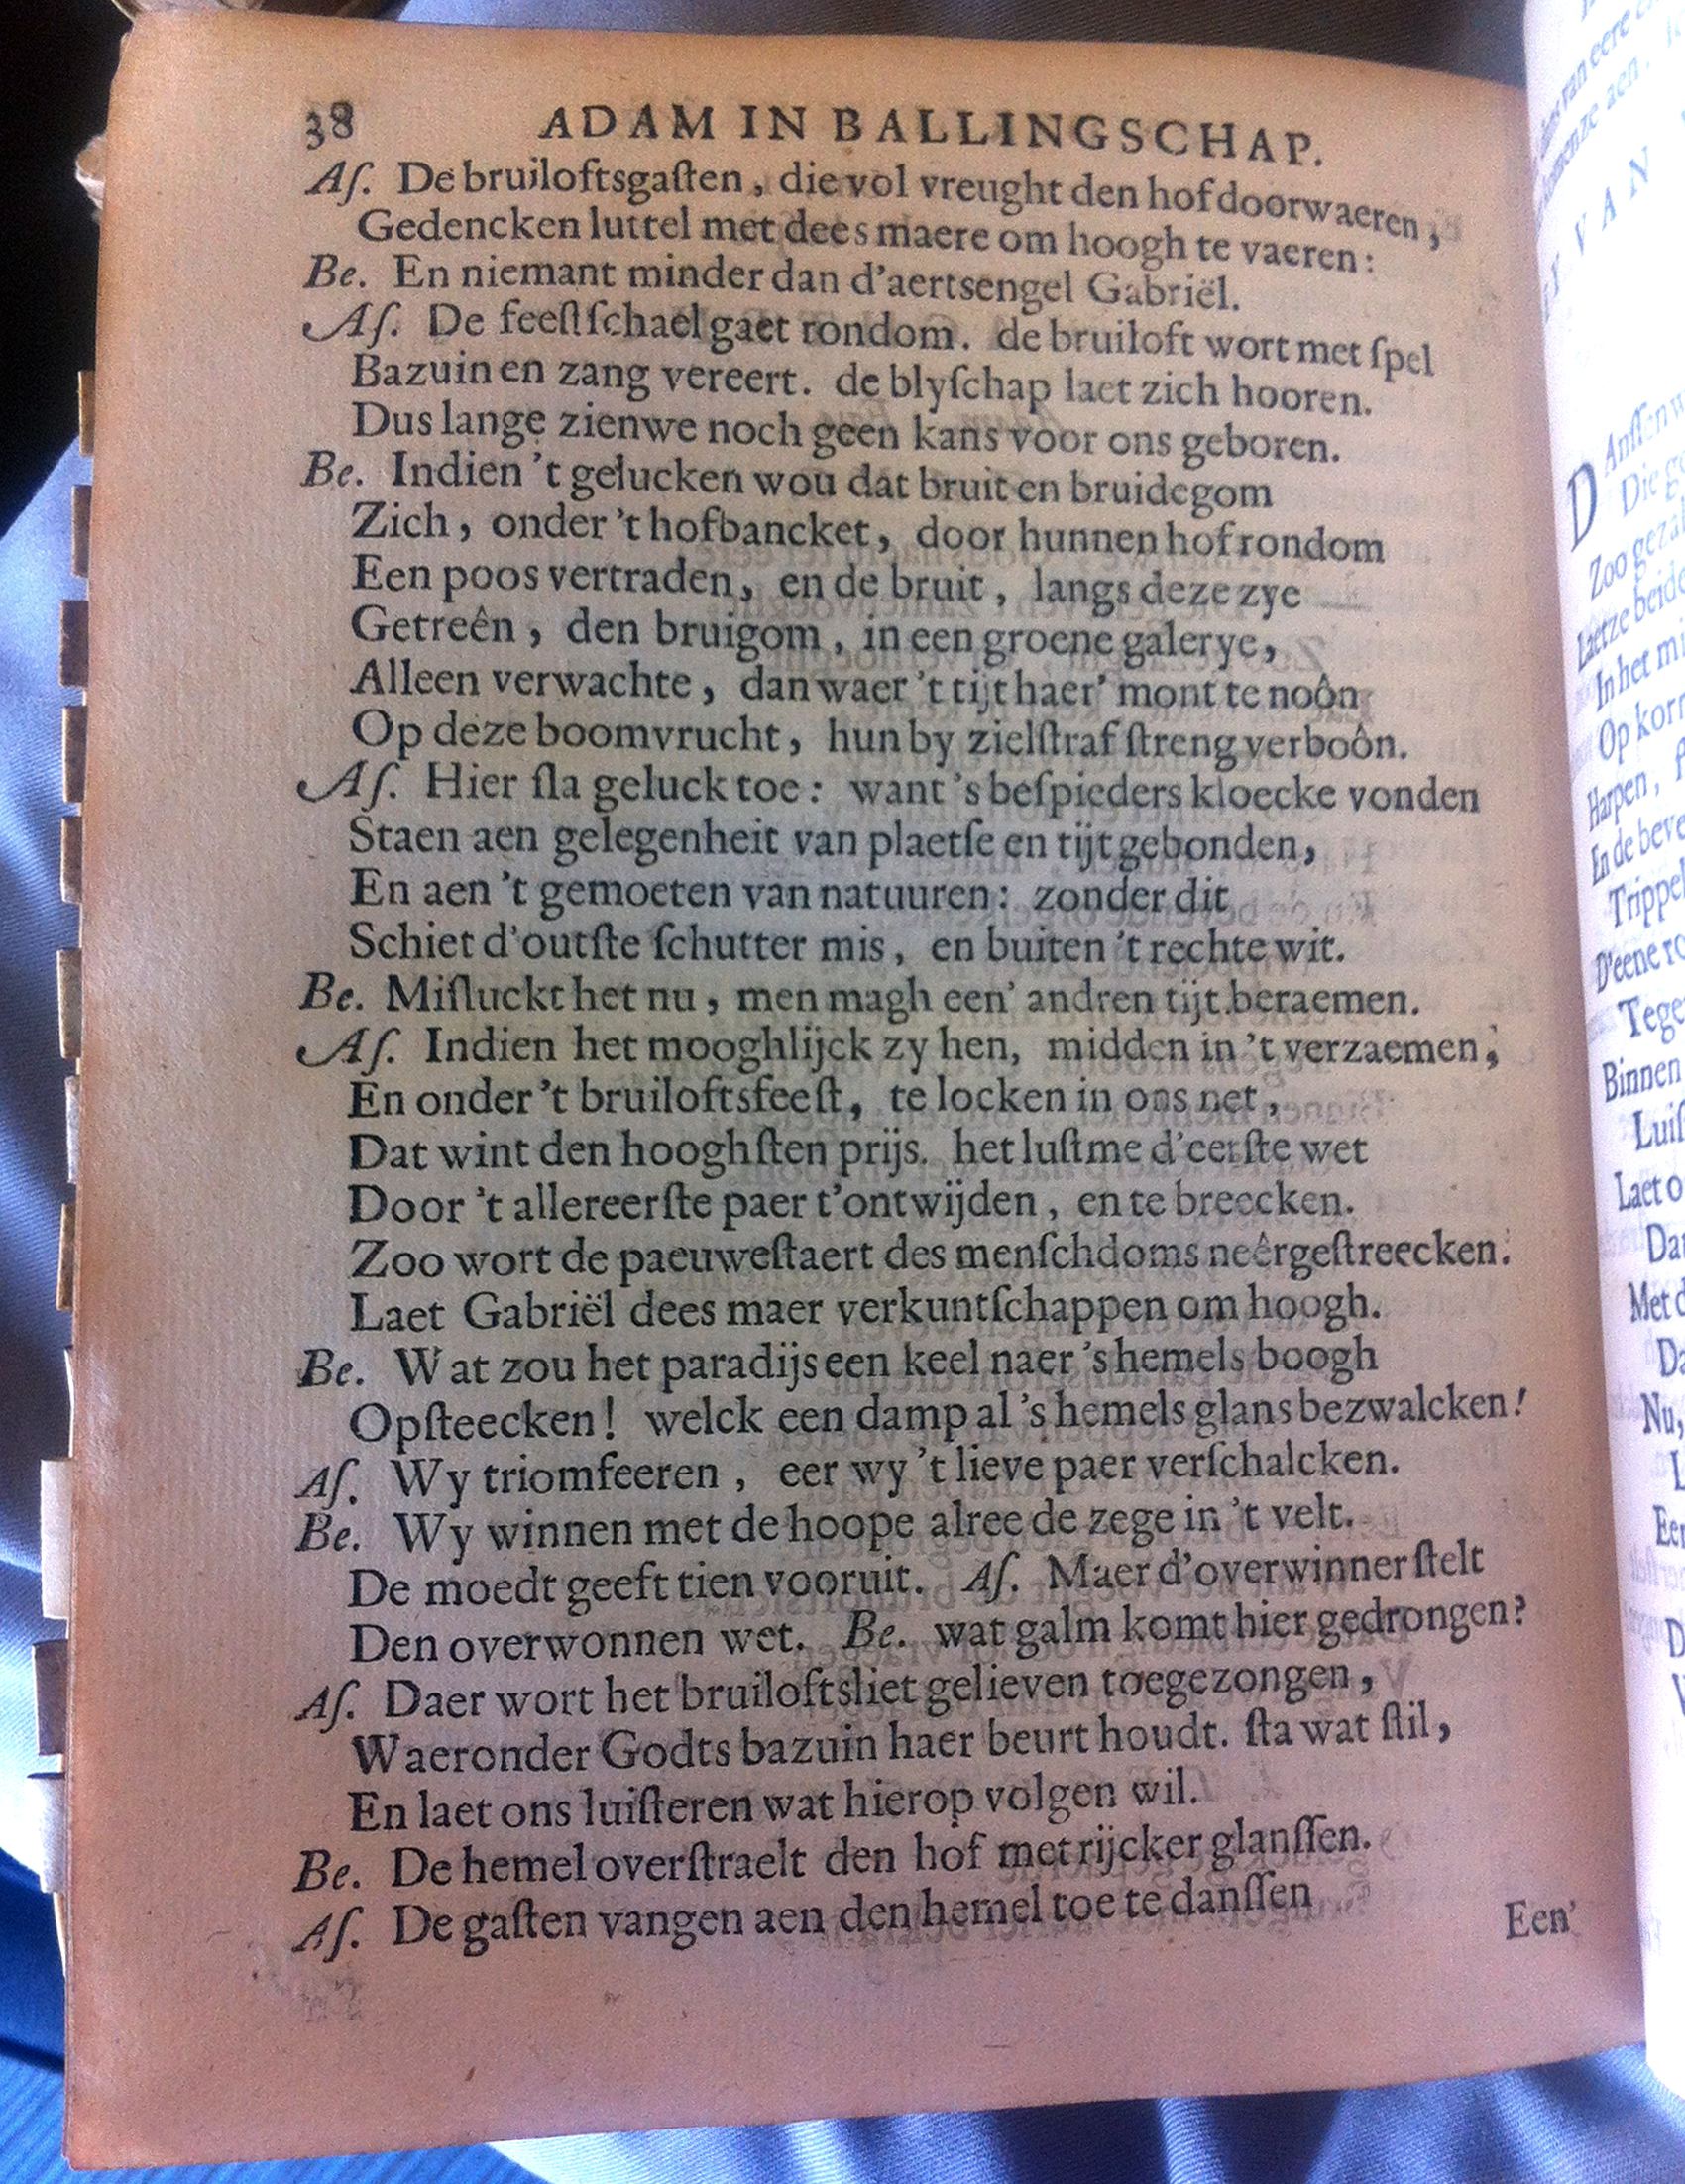 38 ADAM IN BALLINGSCHAP.
Aſ. De bruiloftsgaſten, die vol vreught den hof doorwaeren,
Gedencken luttel met dees maere om hoogh te vaeren:
Be. En niemant minder dan d'aertsengel Gabriël.
Aſ. De feeſtſchael gaet rondom. de bruiloft wort met ſpel
Bazuin en zang vereert. de blyſchap laet zich hooren.
Dus lange zienwe noch geen kans voor ons geboren.
Be. Indien 't gelucken wou dat bruit en bruidegom
Zich, onder 't hofbancket, door hunnen hof rondom
Een poos vertraden, en de bruit, langs deze zye
Getreên, den bruigom, in een groene galerye,
Alleen verwachte, dan waer 't tijt haer' mont te noôn
Op deze boomvrucht, hun by zielſtraf ſtreng verboôn.
Aſ. Hier ſla geluck toe: want 's beſpieders kloecke vonden
Staen aen gelegenheit van plaetſe en tijt gebonden,
En aen 't gemoeten van natuuren: zonder dit
Schiet d'outſte ſchutter mis, en buiten 't rechte wit.
Be. Miſluckt het nu, men magh een' andren tijt beraemen.
Aſ. Indien het mooghlijck zy hen, midden in 't verzaemen,
En onder 't bruiloftsfeeſt, te locken in ons net,
Dat wint den hooghſten prijs. het luſtme d'eerſte wet
Door 't allereerſte paer t'ontwijden, en te breecken.
Zoo wort de paeuweſtaert des menſchdoms neêrgeſtreecken.
Laet Gabriël dees maer verkuntſchappen om hoogh.
Be. Wat zou het paradijs een keel naer 's hemels boogh
Opſteecken! welck een damp al 's hemels glans bezwalcken!
Aſ. Wy triomfeeren, eer wy 't lieve paer verſchalcken.
Be. Wy winnen met de hoope alree de zege in 't velt.
De moedt geeft tien vooruit. Aſ. Maer d'overwinner ſtelt
Den overwonnen wet. Be. wat galm komt hier gedrongen?
Aſ. Daer wort het bruiloftsliet gelieven toegezongen,
Waeronder Godts bazuin haer beurt houdt. ſta wat ſtil,
En laet ons luiſteren wat hierop volgen wil.
Be. De hemel overſtraelt den hof met rijcker glanſſen.
Aſ. De gaſten vangen aen den hemel toe te danſſen
Een'
VAN
Danſſen
Die
Zoo
Laetze beide
In het
Op
Harpen,
En de
D'eene
Binnen
Laet
Met
Nu,